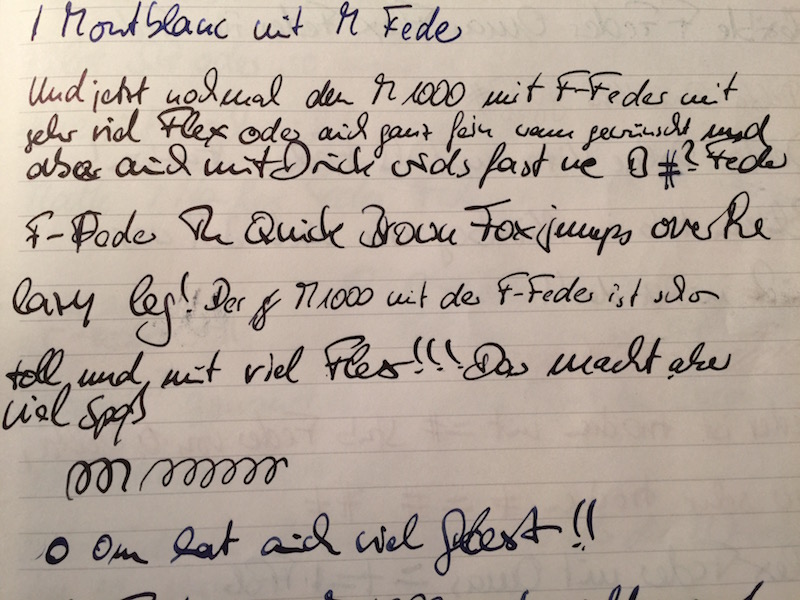 1 Montblanc mit M Feder
Und jetzt nochmal den M1000 mit F-Feder mit
sehr viel Flex oder auch ganz fein wenn gewünscht und
aber auch mit Druck fast ne Feder
F-Feder The Quick Brown Fox jumps over the
lazy leg! Der M1000 mit der F-Feder ist schon
toll und mit viel Flex!!! Das macht aber
viel Spaß
O Om hat auch viel